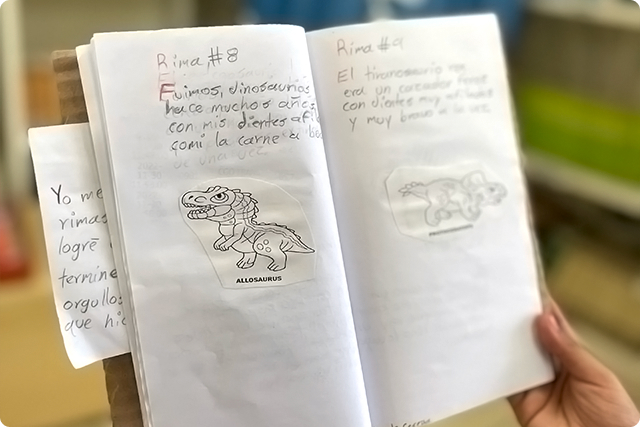 Yo me
rimas
logré
termine
orgullos
que hic
Rima #8
Fuimos, dinosaurios
hace muchos años,
con mis dientes afi
comí la carne a
de una vez
ALLOSAURUS
Rima #9
El tiranosaurio rex
era un cazador feroz
con dientes muy afilados
y muy bravo a la vez